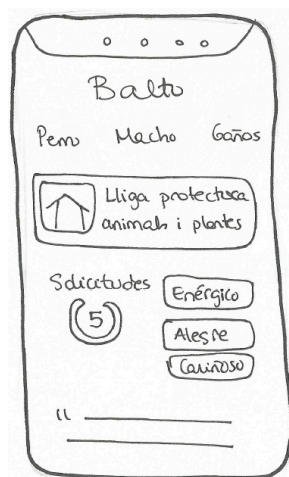 Balto
Perro Macho 6años
Lliga protectora
animals i plantes
Solicitudes
5
Enérgico
Alegre
Cariñoso
“